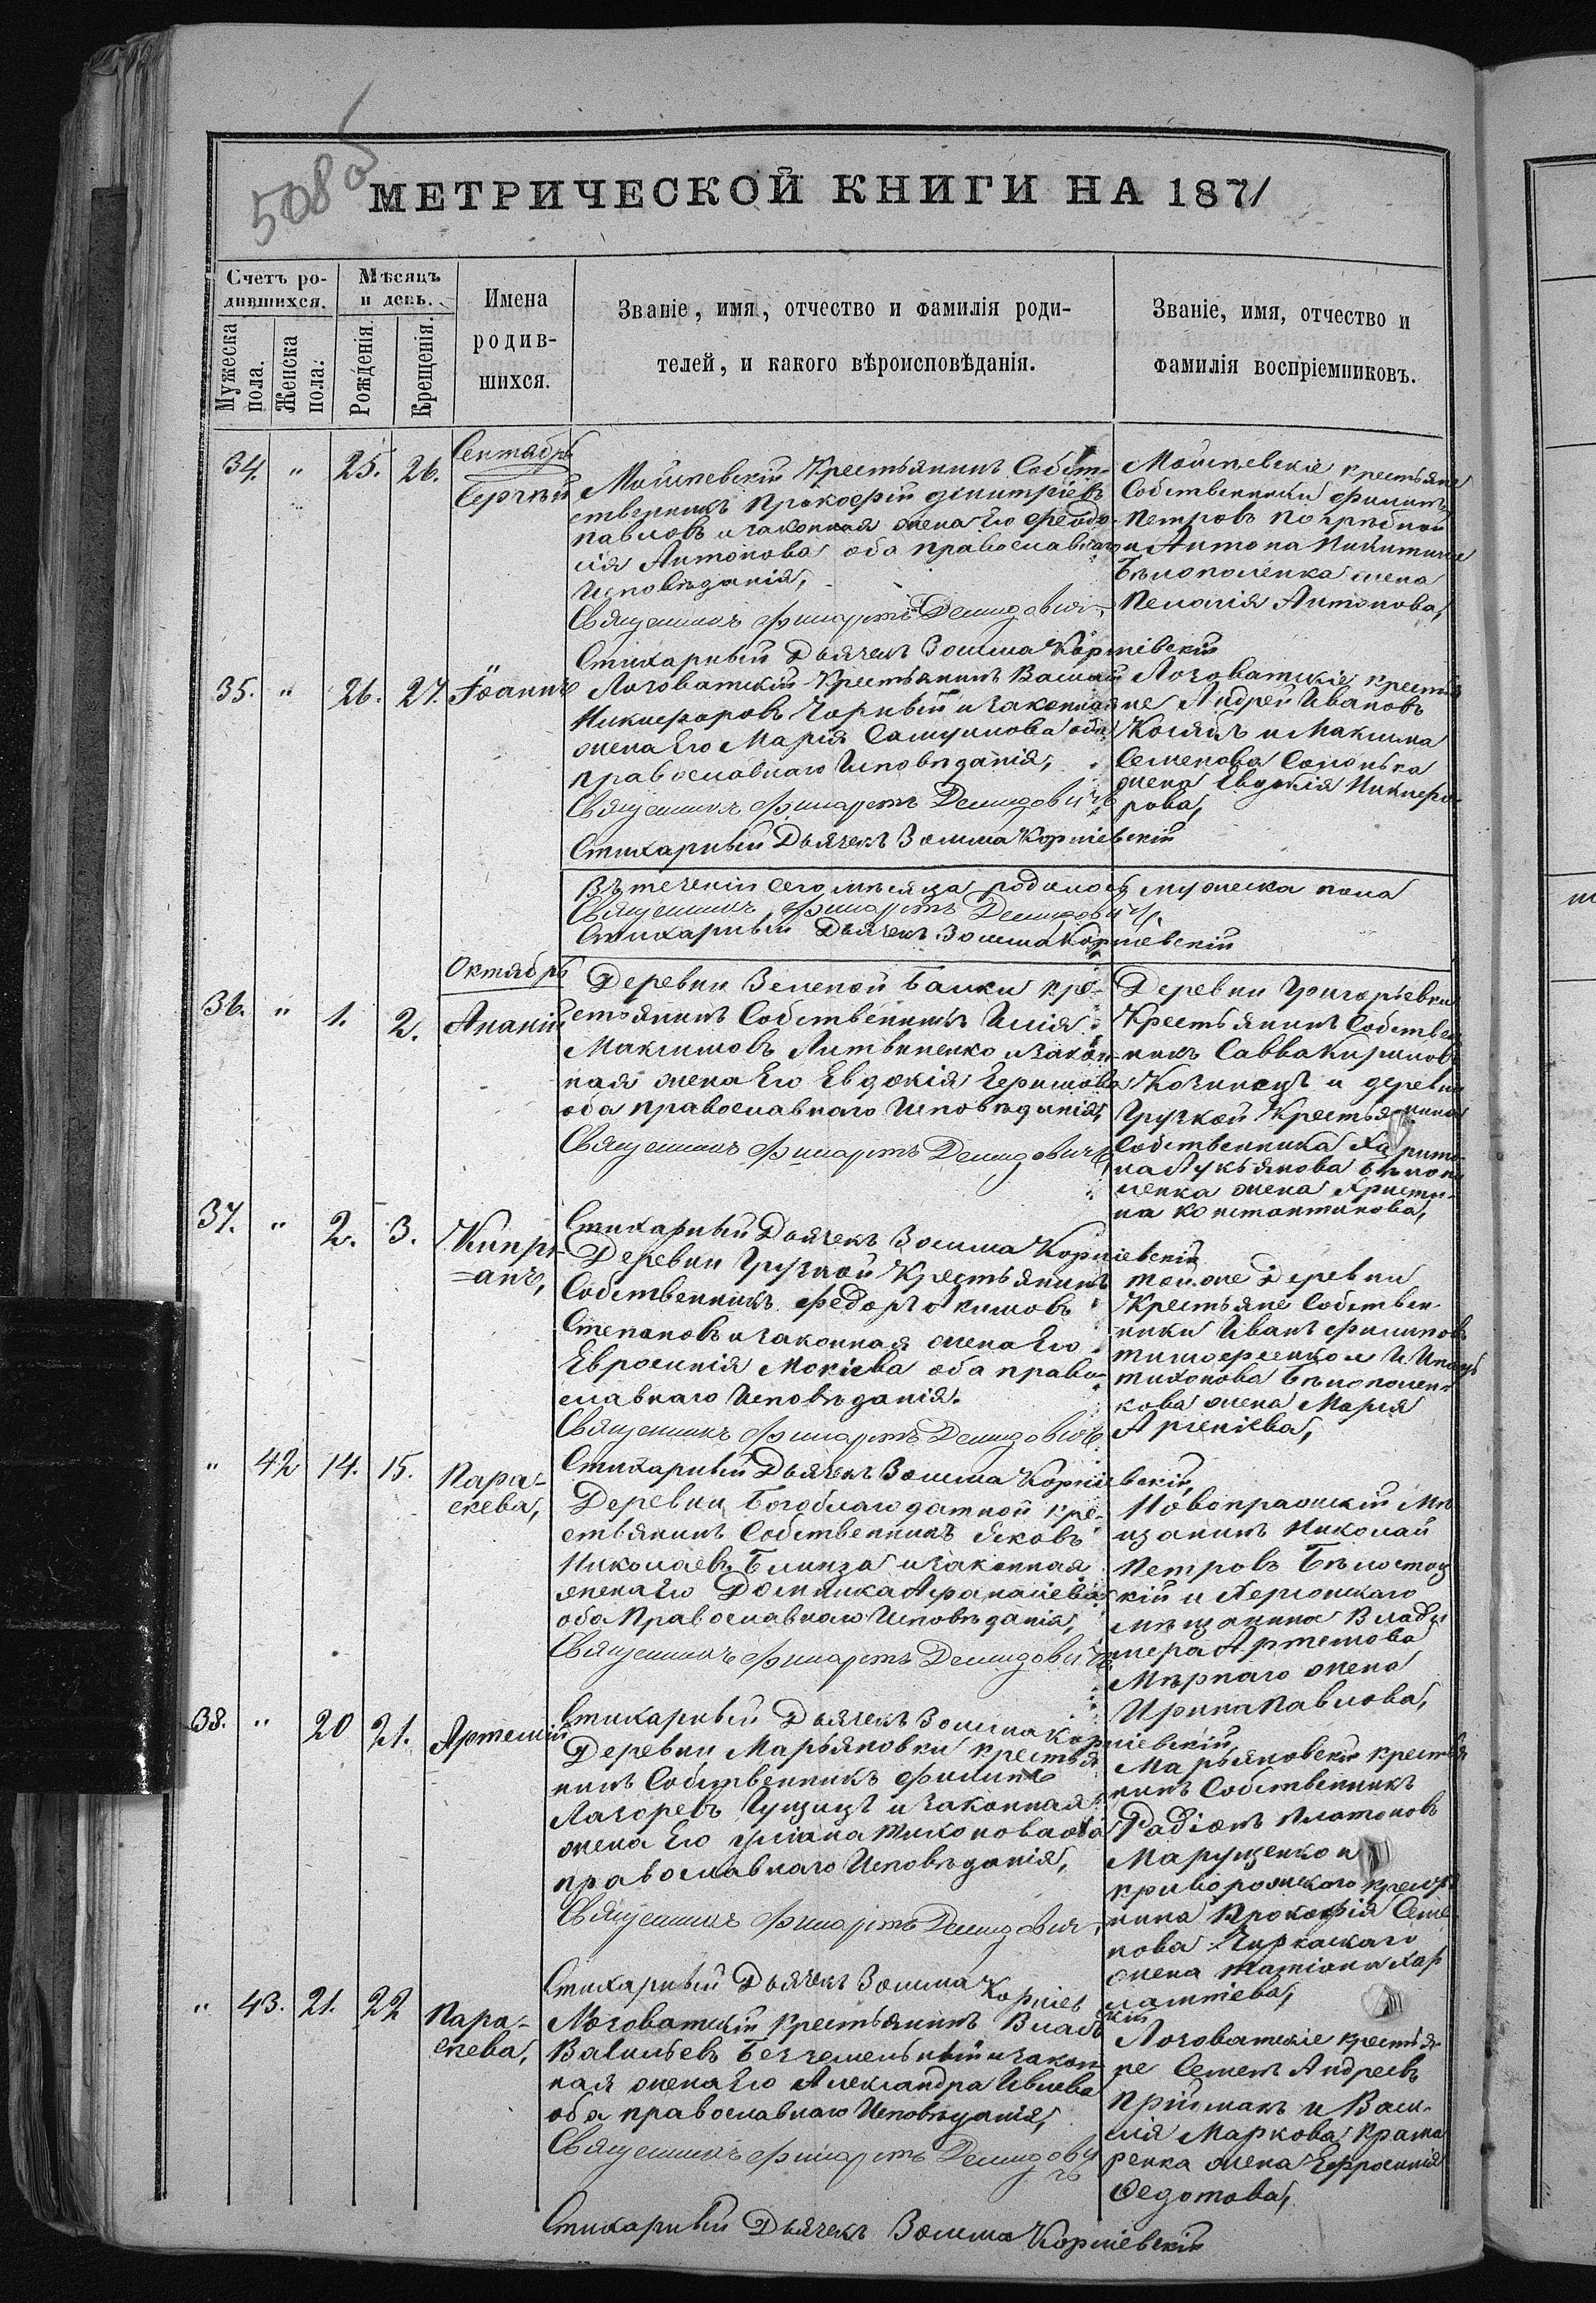 508 об
МЕТРИЧЕСКОЙ КНИГИ НА 1871
Счетъ ро-
дившихся.
Мужеска
пола.
Женска
пола.
Мѣсяцъ
и день.
Рожденія.
Крещенія.
Имена
родив-
шихся.
Званіе, имя, отчество и фамилія роди-
телей, и какого вѣроисповѣданія.
Званіе, имя, отчество и
фамилія воспріемниковъ.
Сентябрь
34. " 25. 26. Сергѣй
Крестьянинъ Собст-
ственникъ Прокофій Димитріевъ
Павловъ и законная жена Его Феодо-
сія Антонова оба православнаго
Исповѣданія,
Священникъ Филаретъ Демидовичъ,
Стихарный Дьячекъ Зосима Корніевскій
крестьяне
Собственники Филипъ
Петровъ
и Антона Никитина
Бѣлополенка жена
Пелагія Антонова,
35. " 26. 27. Іоаннъ
Лозоватскій Крестьянинъ Василій
Никифоровъ Чорный и законная
жена Его Марія Самуилова оба
православнаго Исповѣданія,
Священникъ Филаретъ Демидовичъ
Стихарный Дьячекъ Зосима Корніевскій
Лозоватскіе крестья
не Андрей Ивановъ
и Максима
Семенова
жена Евдокія Никифо-
рова,
Въ теченіи сего мѣсяца родилось мужеска пола
Священникъ Филаретъ Демидовичъ.
Стихарный Дьячекъ Зосима Корніевскій
Октябрь
36. " 1. 2. Ананій
Деревни Зеленой Балки кре-
стьянинъ Собственникъ Илія
Максимовъ Литвиненко и закон-
ная жена Его Евдокія Герасимова
оба православнаго Исповѣданія,
Священникъ Филаретъ Демидовичъ
Стихарный Дьячекъ Зосима Корніевскій
Деревни Григорьевки
Крестьянинъ Собствен
никъ Савва Кириловъ
и деревни
Грузкой Крестьянина
Собственника Харито-
на Лукьянова Бѣлопо
ленка жена Христи-
на Константинова,
37. " 2. 3. Кипрі-
=анъ,
Деревни Грузкой Крестьянинъ
Собственникъ Федоръ Акимовъ
Степановъ и законная жена Его
Евросинія Мокіева оба право-
славнаго Исповѣданія.
Священникъ Филаретъ Демидовичъ
Стихарный Дьячекъ Зосима Корніевскій,
Той же Деревни
Крестьяне Собствен-
ники Иванъ Филиповъ
Тихонова Бѣлополен-
кова жена Марія
Арсеніева,
" 42 14. 15. Пара-
скева,
Деревни Богоблагодатной кре-
стьянинъ Собственникъ Яковъ
Николаевъ Блинза и законная
жена Его Домникія Афанасіева
оба Православнаго Исповѣданія,
Священникъ Филаретъ Демидовичъ
Стихарный Дьячекъ Зосима Корніевскій,
Новопражскій Мѣ
щанинъ Николай
Петровъ Бѣлостоц
кій и Херсонскаго
мѣщанина Влади
мера Артемова
Мѣрнаго жена
Ирина Павлова,
38. " 20 21. Артемій
Деревни Марьяновки крестья
нинъ Собственникъ Филипъ
Лазоревъ Гущицъ и законная
жена Его Уліана Тихонова оба
православнаго Исповѣданія,
Священникъ Филаретъ Демидовичъ,
Стихарный Дьячекъ Зосима Корніевскій
Марьяновскій крестья
нинъ Собственникъ
Радіонъ Платоновъ
Марущенко и
криворожскаго крестья
нина Прокофія Семе
нова Чиркаскаго
жена Татіана Хар
лампіева,
" 43. 21. 22 Пара-
скева,
Лозоватскій крестьянинъ Власъ
Васильевъ и закон-
ная жена Его Александра Ивлева
оба православнаго Исповѣданія,
Священникъ Филаретъ Демидовичъ
Стихарный Дьячекъ Зосима Корніевскій
Лозоватскіе крестья-
не Семенъ Андреевъ
Прійманъ и Васи-
лія Маркова Крама
ренка жена Евросинія
Федотова,